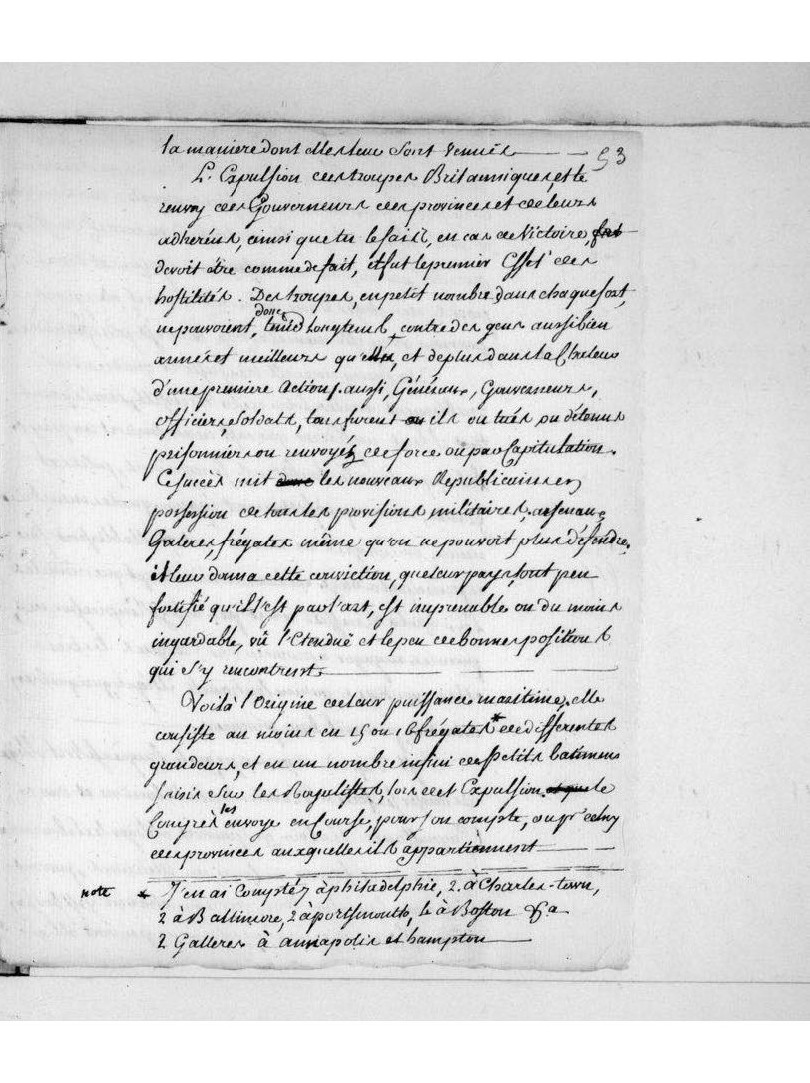 la maniere dont elles leur sont venues 53
L'Expulsion des troupes Britanniques, et le
renvoy des Gouverneurs des provinces et de leurs
adherens, ainsi que tu le sais, en cas de Victoire, fut
devoit être comme de fait, et fut le premier Effet des
hostilités. Des troupes, en petit nombre dans chaque fort,
ne pouvoient donc tenir longtems contre des gens aussi bien
armés et meilleurs qu'elles, et de plus dans la Chaleur
d'une premiere Action; aussi, Généraux, Gouverneurs,
officiers, Soldats, tous furent ou ils ou tués ou détenus
prisonniers ou renvoyés de force ou par Capitulation.
Ce succès mit donc les nouveaux Republicains en
possession de toutes les provisions militaires, arsenaux,
Galeres, frégates même qu'on ne pouvoit plus défendre,
et leur donna cette conviction, que leur pays, tout peu
fortifié qu'il l'est par l'art, est imprenable ou du moins
ingardable, vû l'Etenduë et le peu de bonnes positions
qui s'y rencontrent
Voilà l'Origine de leur puissance maritime, elle
consiste au moins en 15 ou 16 frégates * de differentes
grandeurs, et en un nombre infini de petits batimens
saisis sur les Royalistes, lors de cet Expulsion. et que le
Congrès les envoye en Course, pour son compte, ou pr. celuy
des provinces auxquelles ils appartiennent
note * J'en ai Compté 7 à philadelphie, 2. à Charles-town,
2 à Baltimore, 2 à portsmouth, le à Boston &a
2 Galleres à annapolis et hampton